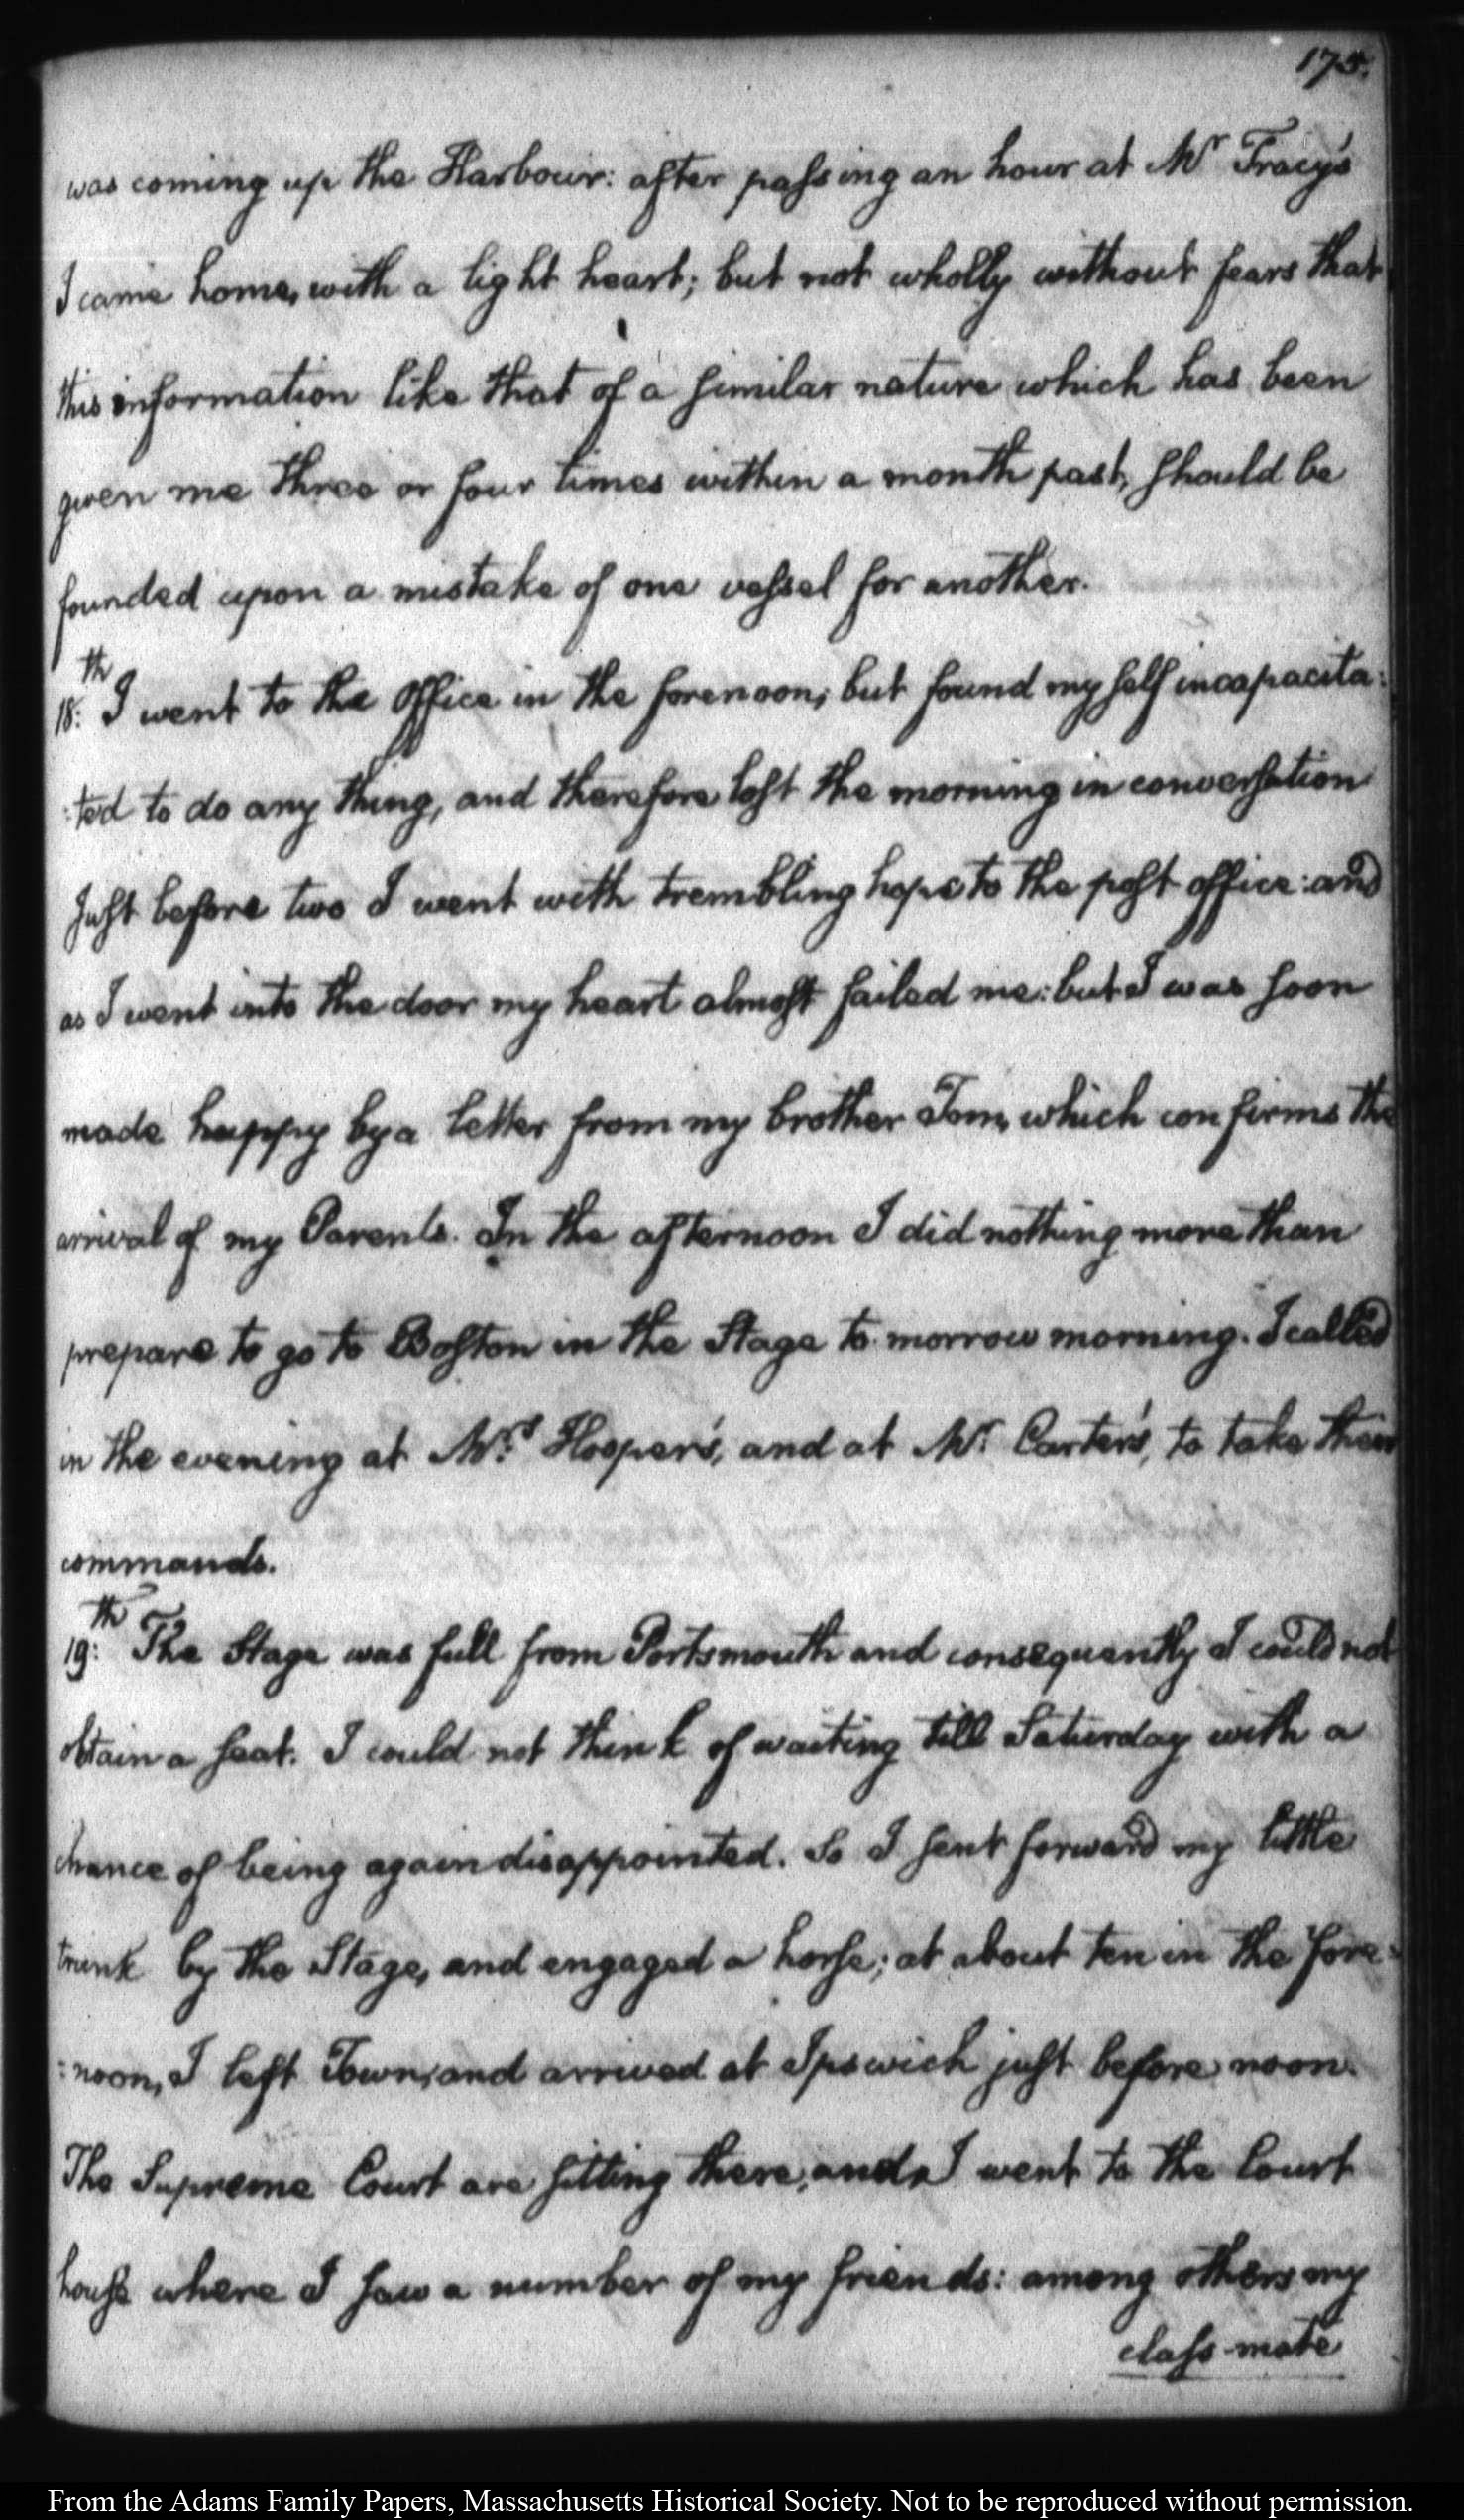 175.
was coming up the Harbour: after passing an hour at Mr Tracy's
I came home, with a light heart; but not wholly without fears that
this information like that of a similar nature which has been
given me three or four times within a month past, should be
founded upon a mistake of one vessel for another.
18:th I went to the Office in the forenoon; but found myself incapacita:
:ted to do any thing, and therefore lost the morning in conversation
Just before two I went with trembling hope to the post office: and
as I went into the door my heart almost failed me: but I was soon
made happy by a letter from my brother Tom, which confirms the
arrival of my Parents. In the afternoon I did nothing more than
prepare to go to Boston in the Stage to-morrow morning. I called
in the evening at Mrs. Hooper's, and at Mr. Carter's, to take their
commands.
19:th The Stage was full from Portsmouth and consequently I could not
obtain a seat. I could not think of waiting till Saturday with a
chance of being again disappointed. So I sent forward my little
trunk by the Stage, and engaged a horse; at about ten in the fore:
:noon, I left Town, and arrived at Ipswich just before noon.
The Supreme Court are sitting there; and I went to the Court
house where I saw a number of my friends: among others my
class-mate
From the Adams Family Papers, Massachusetts Historical Society. Not to be reproduced without permission.